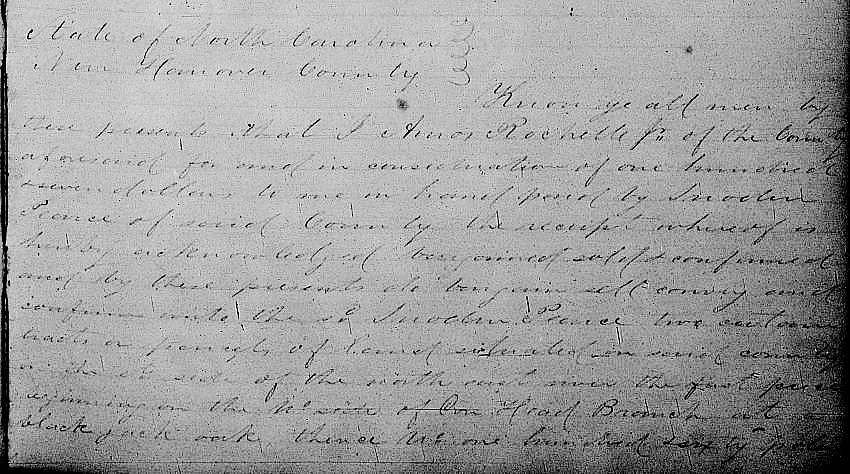 State of North Carolina
New Hanover County
Know ye all men by
these presents that I Amos Rochelle Jr. of the County
aforesaid for and in consideration of one hundred
& seven dollars to me in hand paid by Snoden
Pearce of said County the receipt whereof is
hereby acknowledged bargained sold & confirmed
and by these presents do bargain sell convey and
confirm unto the sd Snoden Pearce two certain
tracts or parcels of land situated in said county
on the side of the north east river the first piece
begining on the side of Head Branch at a
black jack oak thence one hundred sixty poles